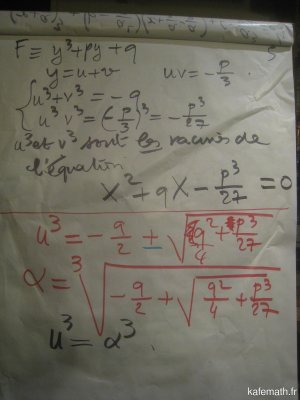 F ≡ y³+py+q
y = u+v uv = -p/3
5
{ u³+v³ = -q
u³v³ = (-p/3)³ = -p³/27
u³ et v³ sont les racines de
l'équation
X² + qX - p³/27 = 0
u³ = -q/2 ± √(q²/4 + p³/27)
α = ³√(-q/2 + √(q²/4 + p³/27))
u³ = α³
kafemath.fr